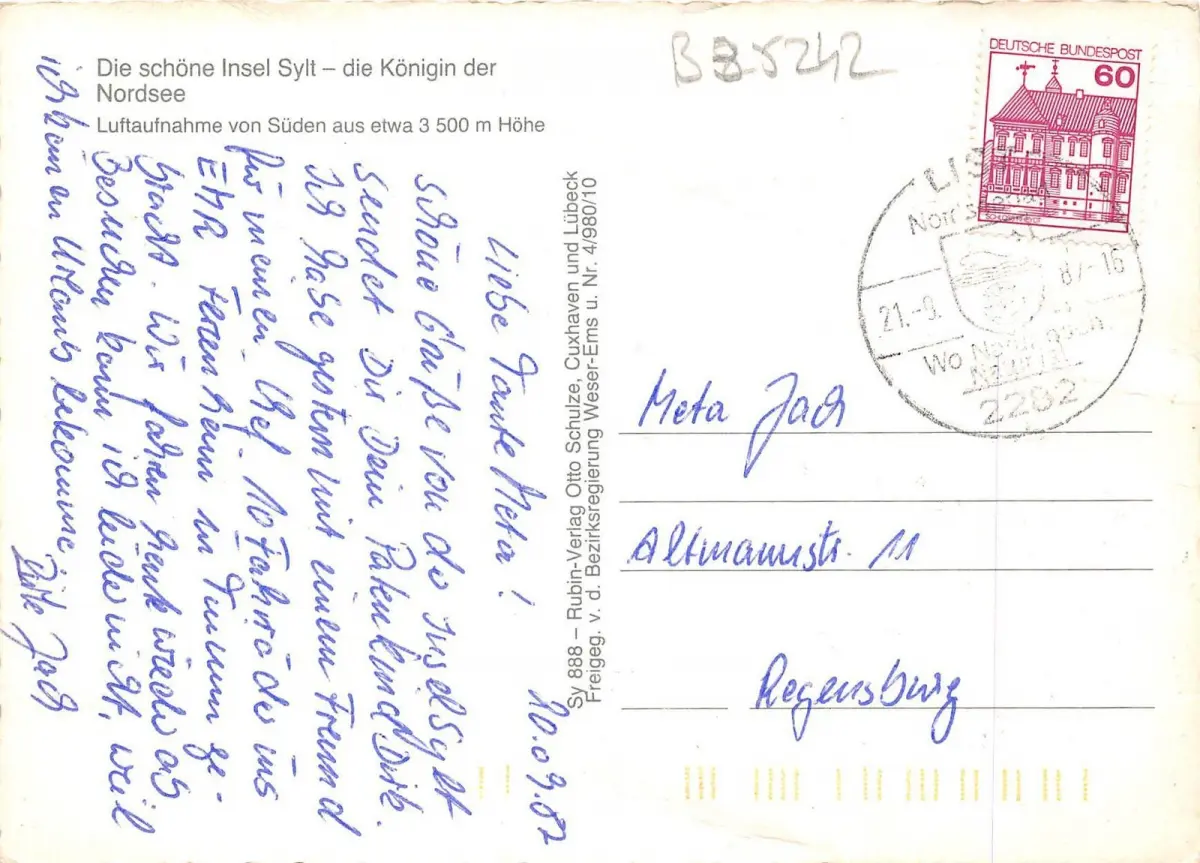 Die schöne Insel Sylt – die Königin der
Nordsee
Luftaufnahme von Süden aus etwa 3 500 m Höhe
B 35242
DEUTSCHE BUNDESPOST
60
LIS
Nords
21.-9. 87-16
Wo Nord
Natur
2282
20.09.82
Liebe Tante Meta!
Schöne Grüße von der Insel Sylt
sendet Dir Dein Patenkind Dirk.
Ich habe gestern mit einem Freund
für meinen Chef 10 Fahrräder ins
Ferienheim in Tinnum ge-
bracht. Wir fahren heute wieder ab
Besuchen kann ich leider nicht, weil
ich kein en Urlaub bekomme.
Dirk Jach
Sy 888 – Rubin-Verlag Otto Schulze, Cuxhaven und Lübeck
Freigeg. v. d. Bezirksregierung Weser-Ems u. Nr. 4/980/10
Meta Jach
Altmannstr. 11
Regensburg